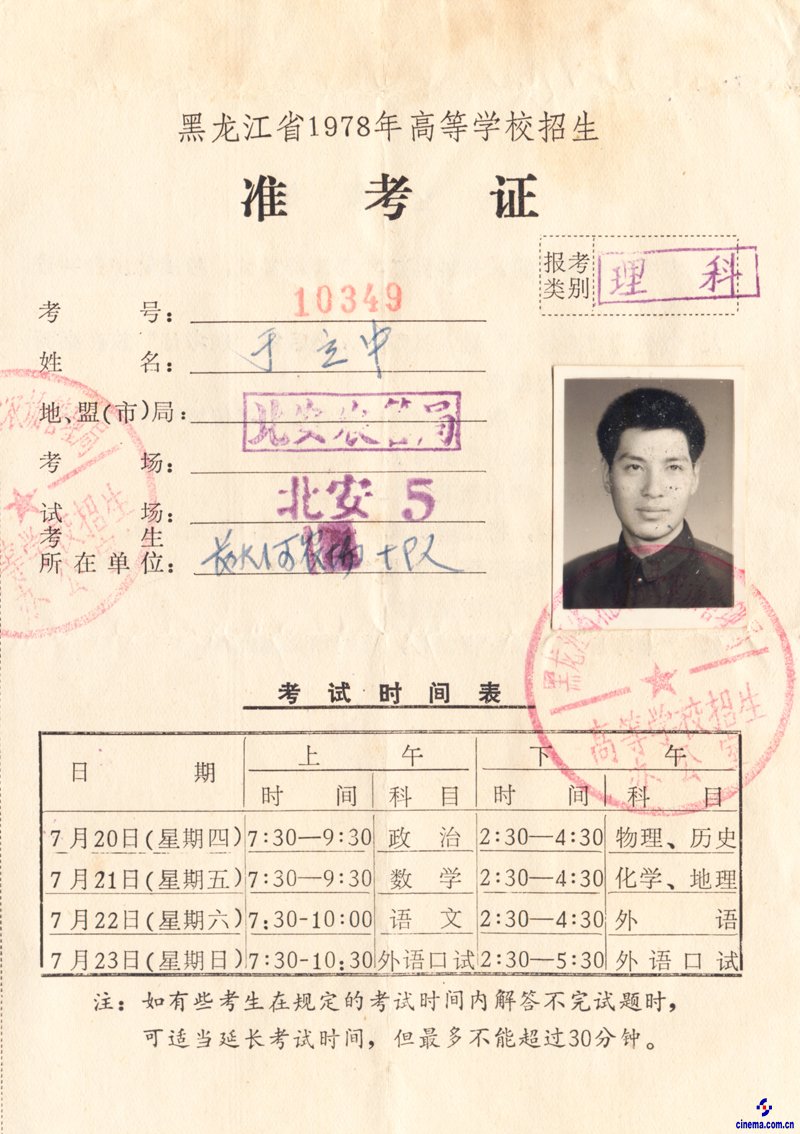 黑龙江省1978年高等学校招生
准考证
报考类别
理科
考号: 10349
姓名: 于立中
地、盟(市)局: 北安农管局
考场:
试场: 北安 5
考生
所在单位: 农场十队
高等学校招生
办公室
黑龙江省
高等学校招生
办公室
考试时间表
日期 上午 下午
时间 科目 时间 科目
7月20日(星期四) 7:30—9:30 政治 2:30—4:30 物理、历史
7月21日(星期五) 7:30—9:30 数学 2:30—4:30 化学、地理
7月22日(星期六) 7:30-10:00 语文 2:30—4:30 外语
7月23日(星期日) 7:30-10:30 外语口试 2:30—5:30 外语口试
注: 如有些考生在规定的考试时间内解答不完试题时,
可适当延长考试时间, 但最多不能超过30分钟。
cinema.com.cn